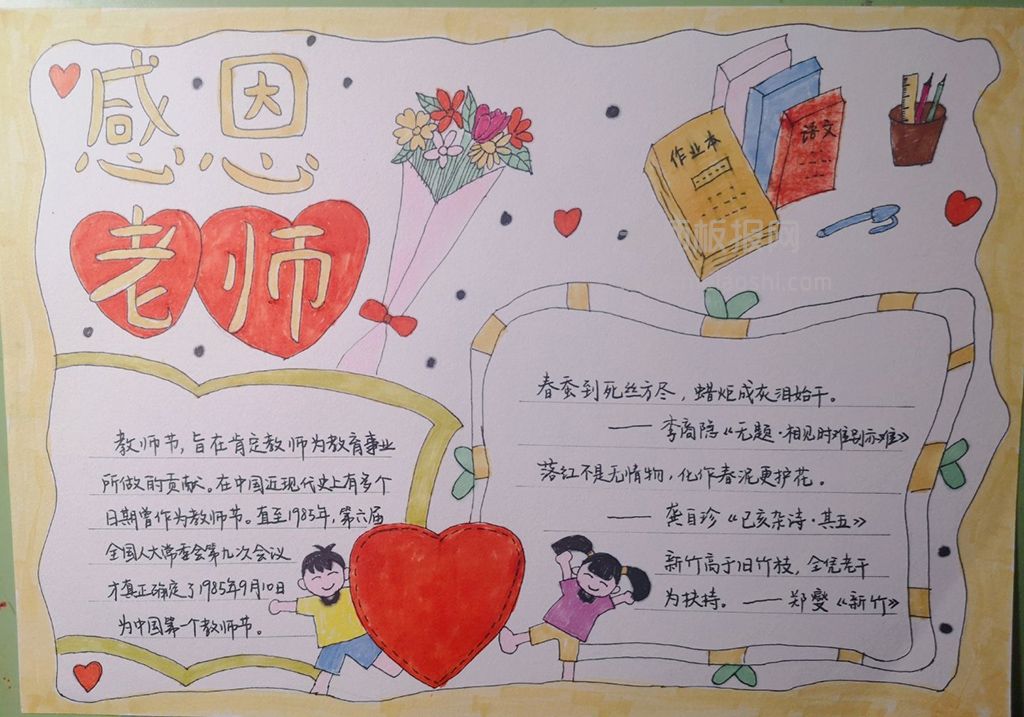 感恩
老师
作业本
语文
教师节,旨在肯定教师为教育事业
所做的贡献。在中国近现代史上有多个
日期曾作为教师节。直至1985年,第六届
全国人大常委会第九次会议
才真正确定了1985年9月10日
为中国第一个教师节。
春蚕到死丝方尽,蜡炬成灰泪始干。
——李商隐《无题·相见时难别亦难》
落红不是无情物,化作春泥更护花。
——龚自珍《己亥杂诗·其五》
新竹高于旧竹枝,全凭老干
为扶持。——郑燮《新竹》